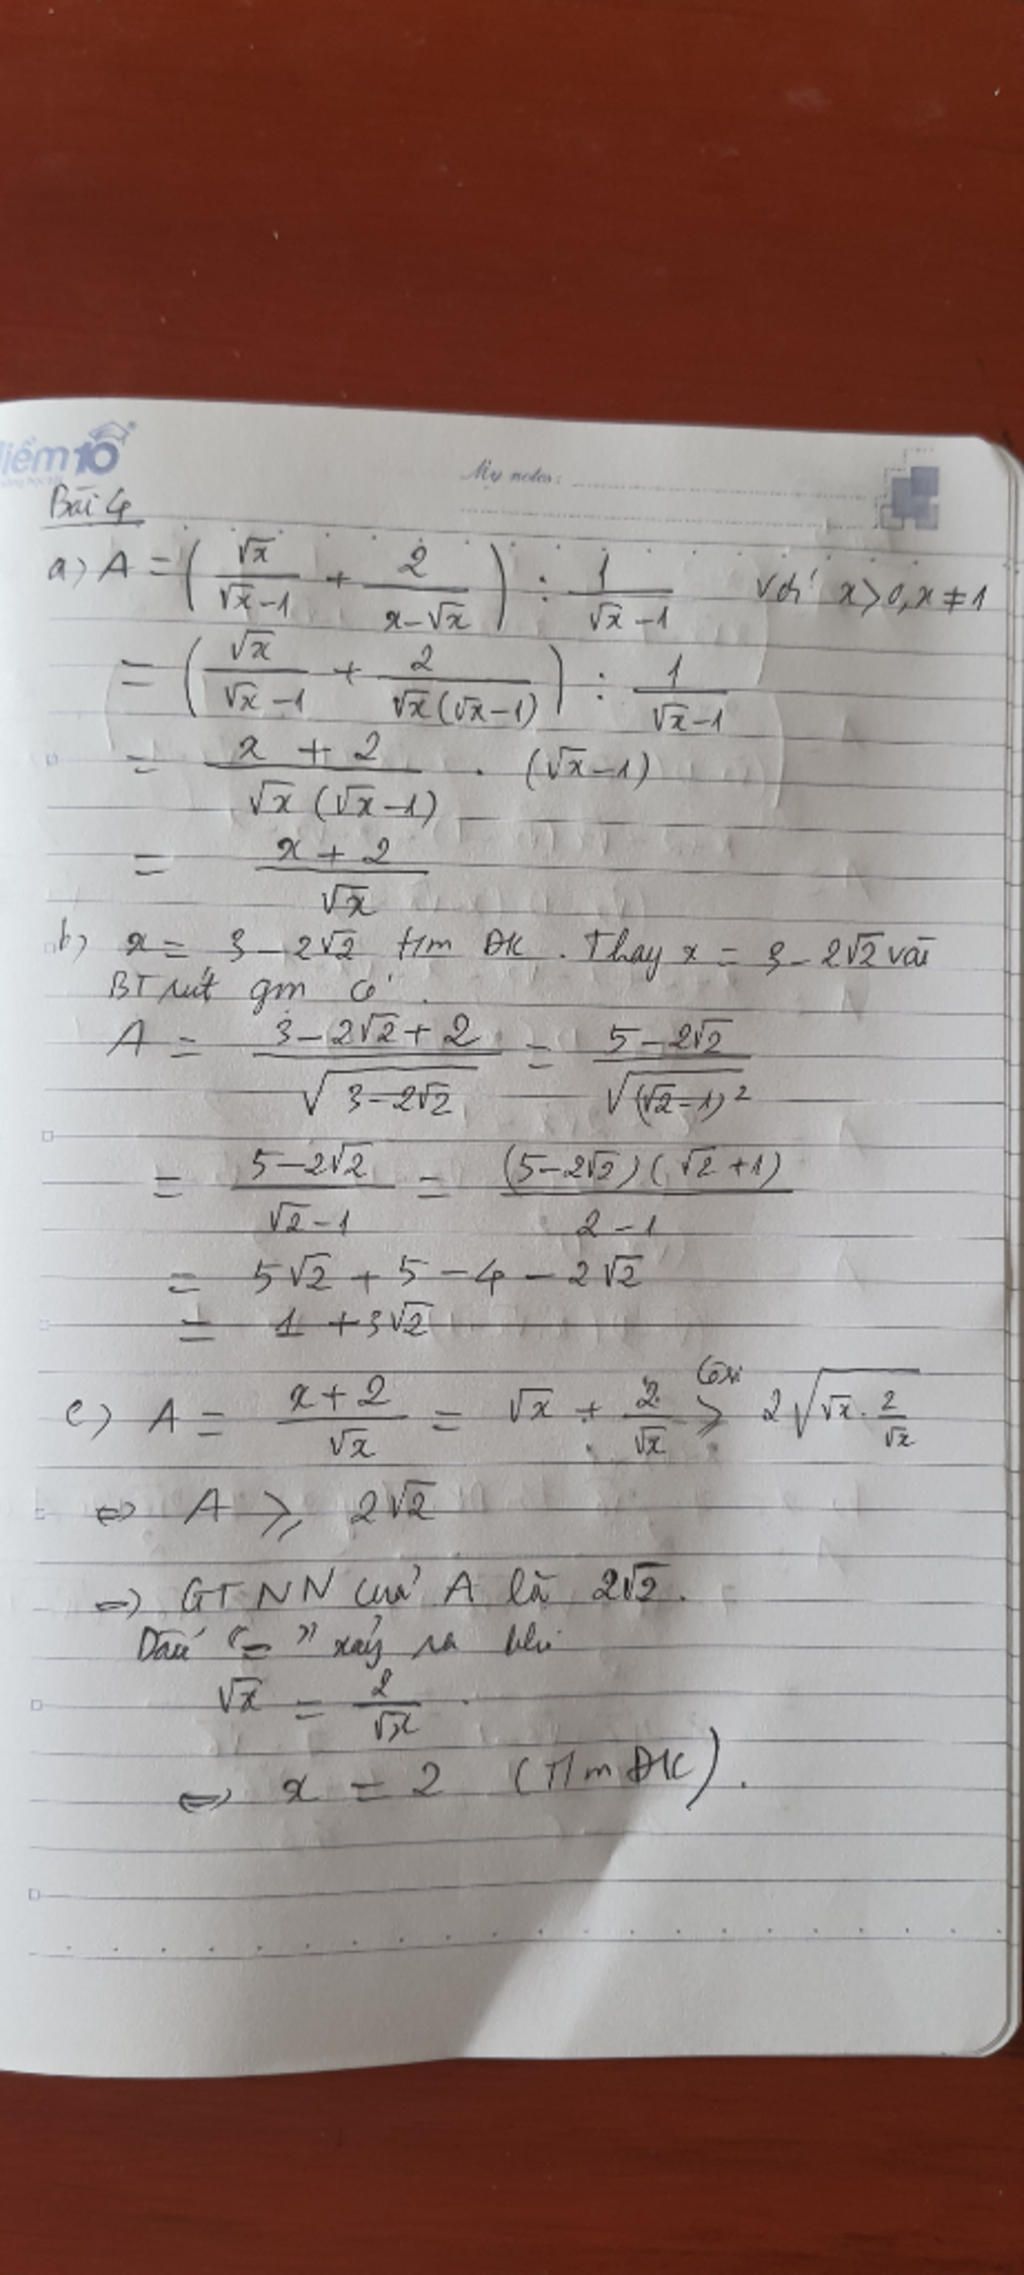 iểm10
My notes:
Bài 4
a) A = (√x/(√x-1) + 2/(x-√x)) : 1/(√x-1) với x>0, x≠1
= (√x/(√x-1) + 2/(√x(√x-1))) : 1/(√x-1)
= (x+2)/(√x(√x-1)) . (√x-1)
= (x+2)/√x
b) x = 3-2√2 t/m ĐK. Thay x = 3-2√2 vào
BT rút gọn có
A = (3-2√2+2)/√(3-2√2) = (5-2√2)/√((√2-1)²)
= (5-2√2)/(√2-1) = (5-2√2)(√2+1)/(2-1)
= 5√2 + 5 - 4 - 2√2
= 1 + 3√2
c) A = (x+2)/√x = √x + 2/√x ≥ Cosi 2√(√x . 2/√x)
⇔ A ≥ 2√2
⇒ GTNN của A là 2√2.
Dấu "=" xảy ra khi
√x = 2/√x
⇔ x = 2 (T/m ĐK).